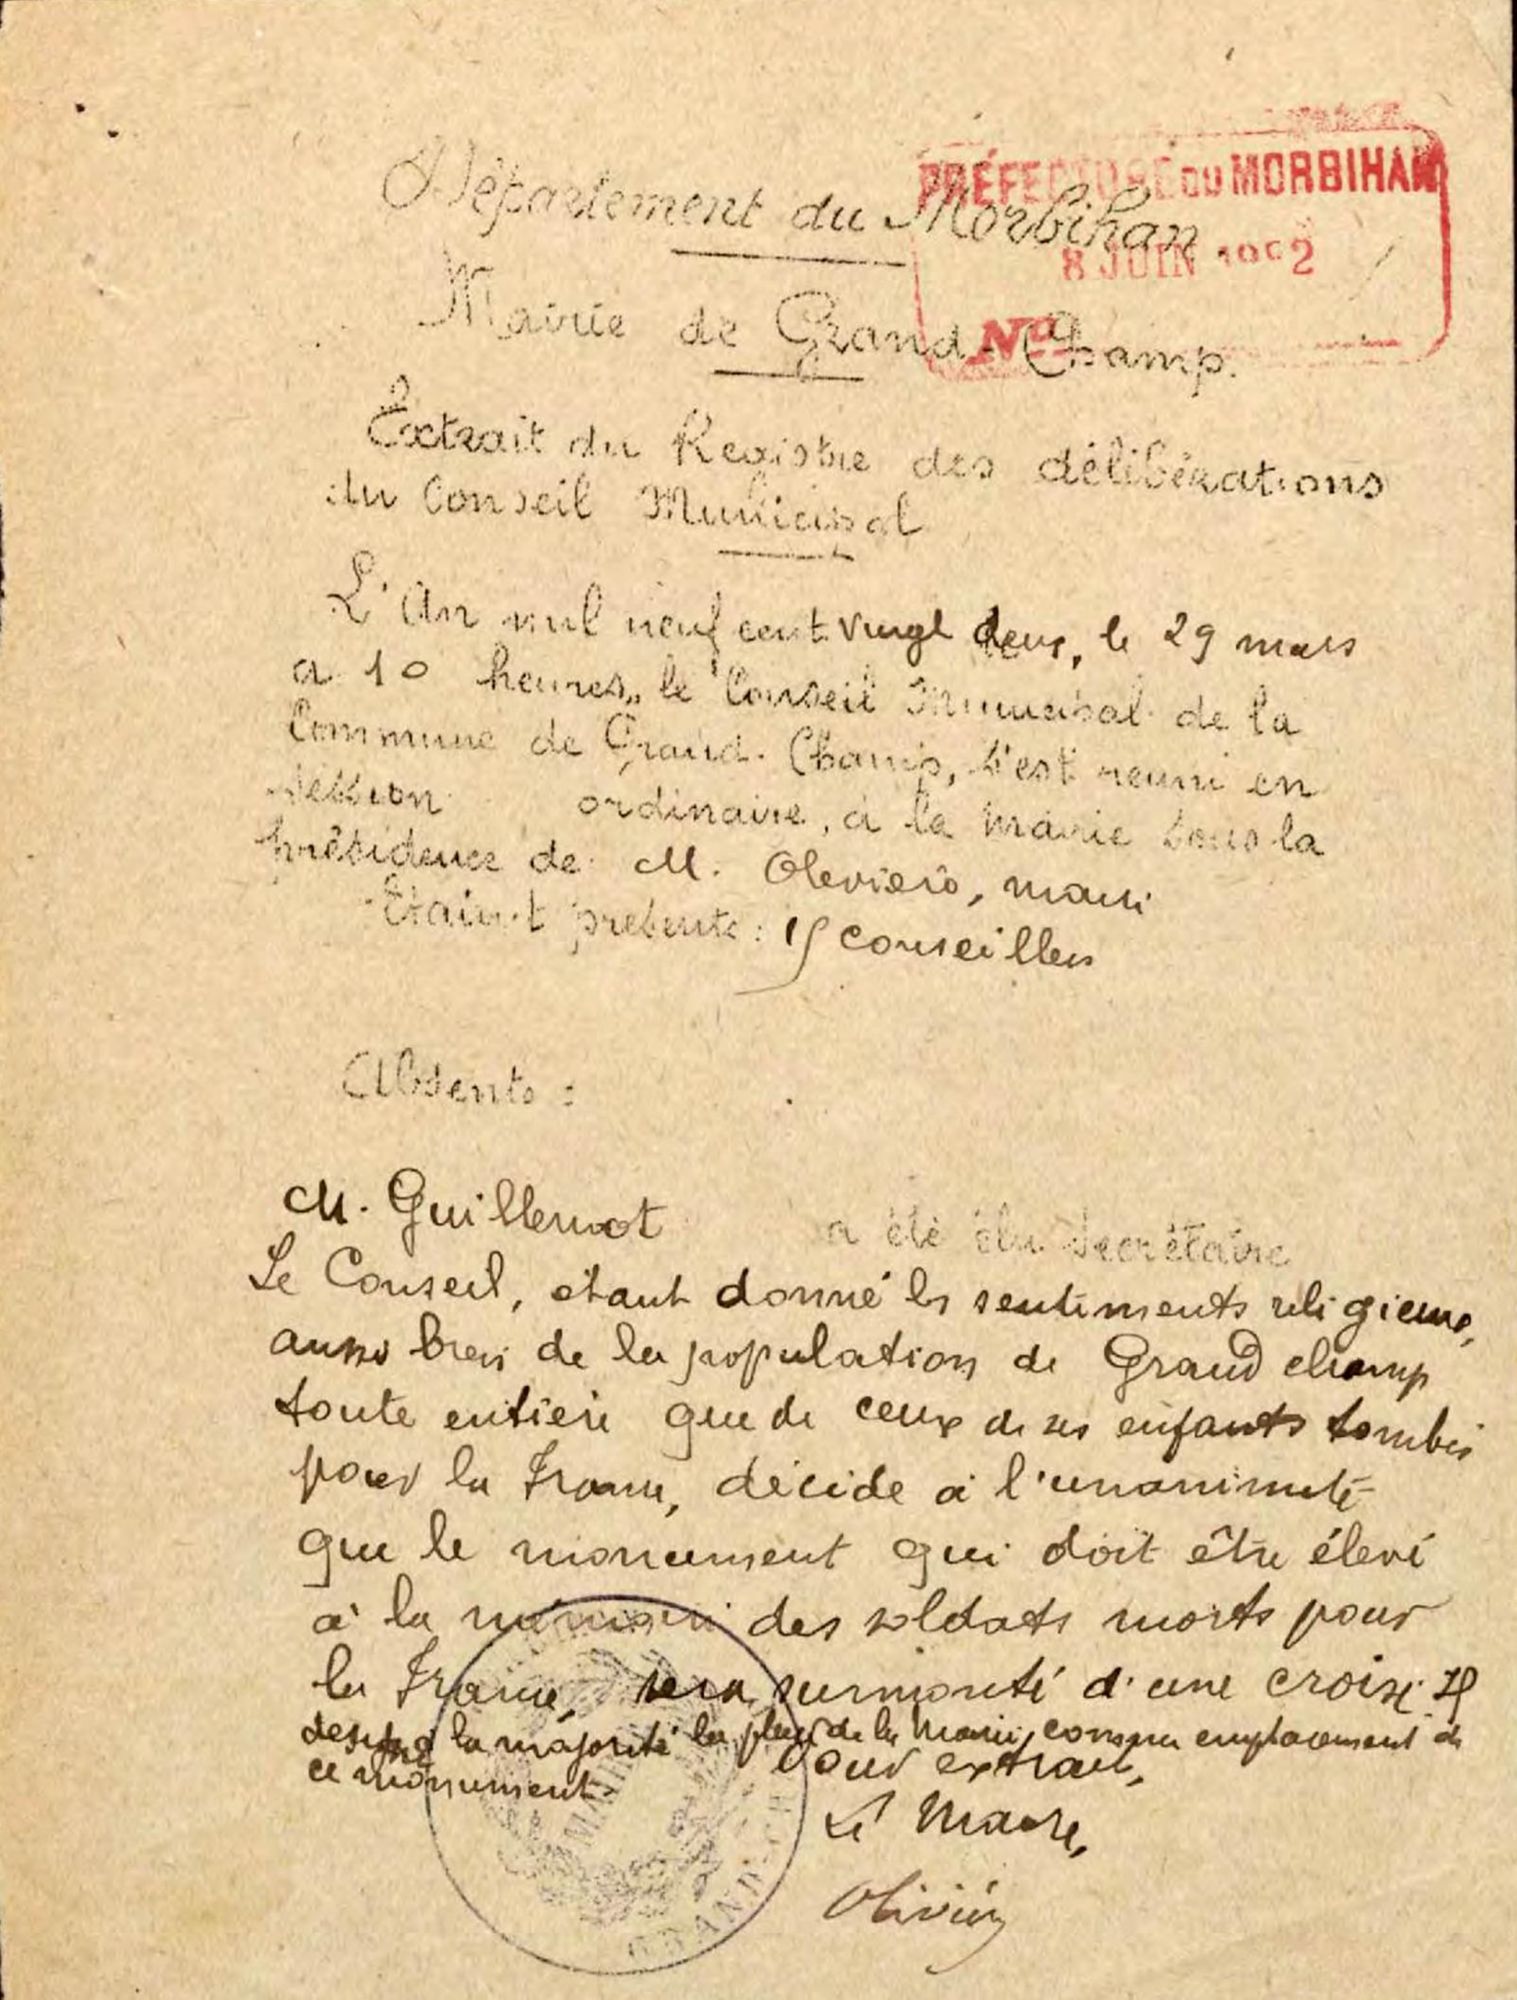 Département du Morbihan
PRÉFECTURE DU MORBIHAN
8 JUIN 19 2
No
Mairie de Grand-Champ.
Extrait du Registre des délibérations
du Conseil Municipal
L'An mil neuf cent vingt deux, le 29 mars
a 10 heures, le Conseil Municipal de la
Commune de Grand-Champ, s'est réuni en
session ordinaire, à la mairie sous la
présidence de M. Oleviero, maire
Etaient présents : 15 conseillers
Absents :
M. Guillemot a été élu secrétaire
Le Conseil, étant donné les sentiments religieux,
aussi bien de la population de Grand champ
toute entière que de ceux de ses enfants tombés
pour la France, décide à l'unanimité
que le monument qui doit être élevé
à la mémoire des soldats morts pour
la France, sera surmonté d'une croix. Il
designe à la majorité la place de la Mairie, comme emplacement de
ce monument.
Pour extrait,
Le Maire,
Olivier
MAIRIE
GRAND-CH